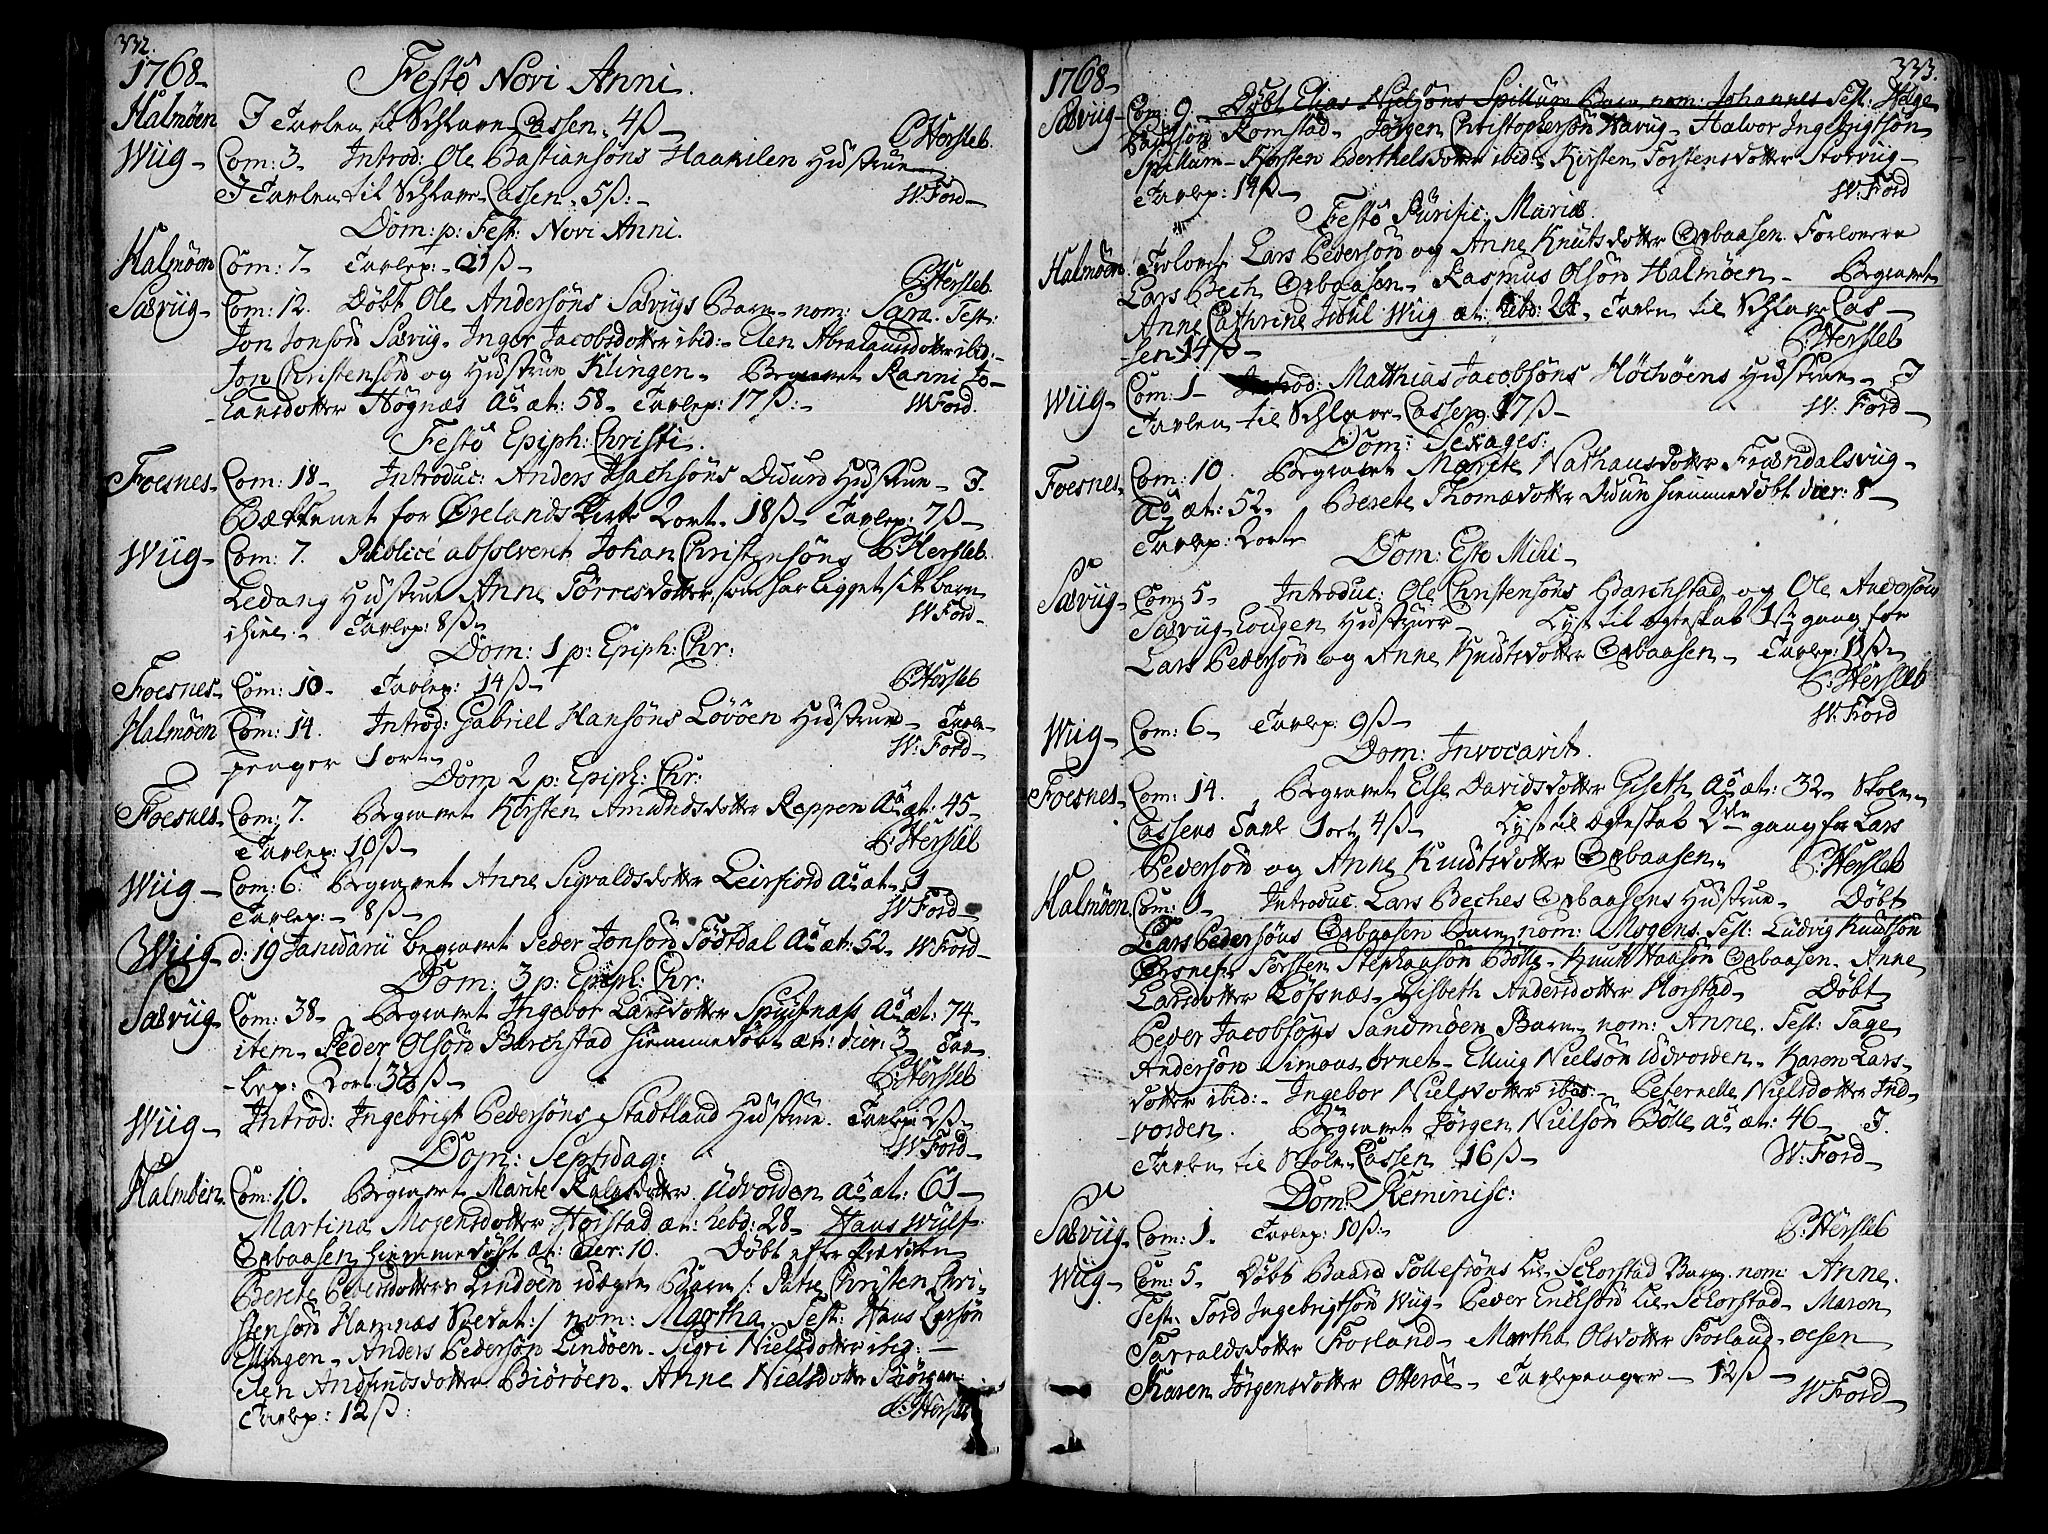 332.
1768-
Festo Novi Anni.
Halmöen I Tavlen til Schlave-Cassen. 4ß-
C:Hersleb.
Wiig- Com: 3. Introd: Ole Bastiansöns Haavilen Hustrue-
I Tavlen til Schlave-Cassen. 5ß:- W:Ford-
Dom: p: Fest: Novi Anni.
Halmöen Com: 7- Tavlep: 21ß-
C:Hersleb.
Sævüg- Com: 12. Döbt Ole Andersöns Sævügs Barn- nom: Sara. Test:
Jon Jonsön Sævüg- Inger Jacobsdotter ibid:- Elen Abrahamsdotter ibid:-
Jon Christensön og Hustrue Klingen- Begravet Ranni Jo-
hansdotter Högnæs Ao æt: 58- Tavlep: 17ß:- W:Ford.
Festo Epiph: Christi.
Foesnes- Com: 18- Introduc: Anders Isachsöns Duun Hustrue- I
Bækkenet for Ørelands Kirke 2ort. 18ß- Tavlep: 7ß-
C:Hersleb.
Wiig- Com: 7. Publicè absolveret Johan Christensöns
Ledang Hustrue Anne Torresdotter, som har ligget sit barn
ihiel.- Tavlep: 8ß- W:Ford-
Dom: 1 p: Epiph: Chr:
Foesnes- Com: 10- Tavlep: 14ß- C:Hersleb
Halmöen Com: 14. Introd: Gabriel Hansöns Lövöen Hustrue- Tavle-
penger 1ort- W:Ford-
Dom 2 p: Epiph: Chr:
Foesnes- Com: 7. Begravet Kirsten Amundsdotter Reppen Ao æt: 45-
Tavlep: 10ß- C:Hersleb
Wiig- Com: 6: Begravet Anne Sigvaldsdotter Leirfiord Ao æt. 1
Tavlep:- 8ß- W:Ford-
Wiig- d: 19 Januarii begravet Peder Jonsön Födtdal Ao æt: 52. W:Ford-
Dom: 3 p: Epiph: Chr:
Sævüg- Com: 38- Begravet Ingebor Larsdotter Ao æt: 74-
item- Peder Olsön Barchstad hiemmedöbt æt: dier: 3 Tav-
lep: 2ort. C:Hersleb
Wiig- Introd: Ingebrigt Pedersöns Stadtland Hustrue. Tavlep: 2ß-
W:Ford-
Dom: Septuag:
Halmöen Com: 10. Begravet Marite Udvorden Ao æt: 61-
Martina Mogensdotter Horstad æt: hebd: 28- Hans Wulf
Opbaasen hiemmedöbt æt: dier: 10. Döbt efter Prædiken
Berete Pedersdotters Lindöen uægte Barn /: Patre Christen Chri-
stensön Hamnæs :/ nom: Martha. Test: Hans Larsön
Ellingen- Anders Pedersön Lindöen- Sigri Nielsdotter ibid:-
Elen Andfindsdotter Biöröen. Anne Nielsdotter
Tavlep: 12ß: C:Hersleb
333.
1768-
Sævüg- Com: 9. Döbt Elias Nielsöns Spillum Barn nom: Johannes Test: Helge
Romstad- Jörgen Christophersön Havüg- Halvor Ingebrigtsön
Spillum- Kirsten Berthelsdotter ibid:- Kirsten Torstensdotter Storvüg-
Tavlep: 14ß- W:Ford
Festo Purific: Mariæ.
Halmöen. Trolovet Lars Pedersön og Anne Knutsdotter Opbaasen. Forlovere
Lars Bech Opbaasen- Rasmus Olsön Halmöen- Begravet
Anne Cathrine Wüg æt: hebd: 24. Tavlen til Schlave Cas-
sen 14ß- C:Hersleb
Wiig- Com: 1- Introd: Mathias Jacobsöns Höchöens Hustrue- I
Tavlen til Schlave-Cassen. 17ß- W:Ford-
Dom: Sexages:
Foesnes- Com: 10. Begravet Marite Nathansdotter Frændalsvüg-
Ao æt: 52. Berete Thomædotter Duun hiemmedöbt dier: 8-
Tavlep: 2ort
Dom: Esto Mihi-
Sævüg- Com: 5- Introduc: Ole Christensöns Barchstad og Ole Andersöns
Sævüg-Eougen Hustruer- Lyst til Ægteskab 1ste gang for
Lars Pedersön og Anne Knudtsdotter Opbaasen- Tavlep: 11ß-
C:Hersleb
Wiig- Com: 6- Tavlep: 9ß- W:Ford
Dom: Invocavit.
Foesnes- Com: 14. Begravet Else Davidsdotter Giseth Ao æt: 32- Skole-
Cassens Tavle 1ort 4ß- Lyst til Ægteskab 2den gang for Lars
Pedersön og Anne Knudtsdotter Opbaasen- C:Hersleb
Halmöen. Com: 1- Introduc. Lars Beches Opbaasens Hustrue- Döbt
Lars Pedersöns Opbaasen Barn nom: Mogens. Test: Ludvig Knudtsön
Torsten Stephansön Bölle- Knut Opbaasen. Anne
Larsdotter Löfsnæs- Lisbeth Andersdotter Horstad- Döbt
Peder Jacobsöns Sandmöen Barn- nom: Anne. Test: Tage
Andersön Elling Nielsön Udvorden- Karen Lars-
dotter ibid:- Ingebor Nielsdotter ibid:- Peternelle Nielsdotter Ud-
vorden. Begravet Jörgen Nielsön Bölle Ao æt: 46- I
Tavlen til Skole-Cassen 16ß- W:Ford-
Dom: Reminisc:
Sævüg- Com: 1. Tavlep: 10ß:- C:Hersleb
Wiig- Com: 5- Döbt Baard Tollefsöns Lil-Selorstad Barn. nom: Anne.
Test: Tord Ingebrigtsön Wüg- Peder Lil-Selorstad- Maren
Tarraldsdotter Frorland- Martha Olsdotter
Karen Jörgensdotter Otteröe- Tavlepenger- 12ß-
W:Ford-